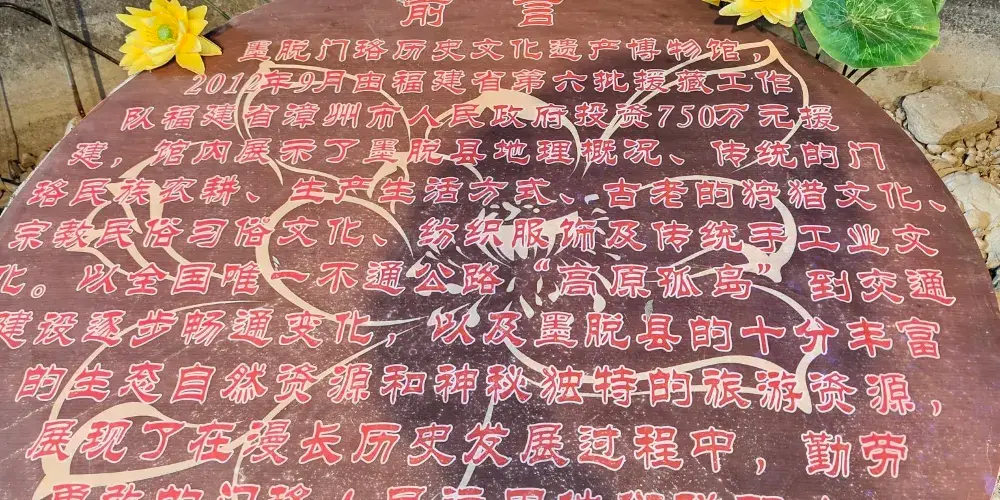 前言
墨脱门珞历史文化遗产博物馆，
2012年9月由福建省第六批援藏工作
队福建省漳州市人民政府投资750万元援
建，馆内展示了墨脱县地理概况、传统的门
珞民族农耕、生产生活方式、古老的狩猎文化、
宗教民俗习俗文化、纺织服饰及传统手工业文
化。以全国唯一不通公路“高原孤岛”到交通
建设逐步畅通变化，以及墨脱县的十分丰富
的生态自然资源和神秘独特的旅游资源，
展现了在漫长历史发展过程中，勤劳
勇敢的门珞人民运用